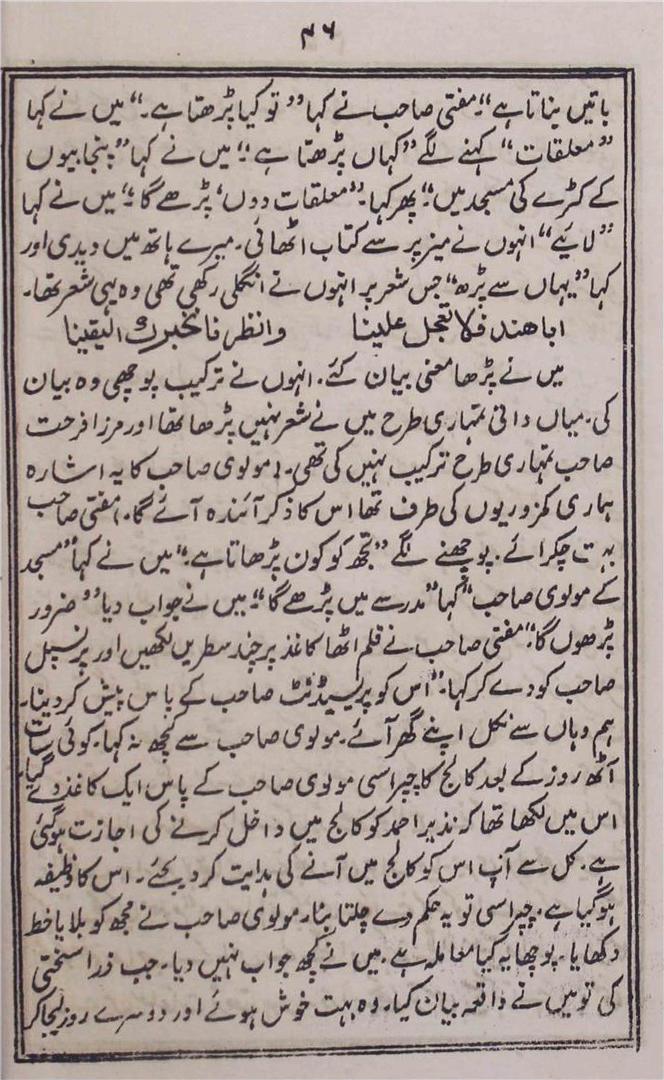 ۴۶
باتیں بناتا ہے“۔ مفتی صاحب نے کہا ”تو کیا پڑھتا ہے۔“ میں نے کہا
”معلقات“ کہنے لگے ”کہاں پڑھتا ہے“ میں نے کہا ”پنجابیوں
کے کٹرے کی مسجد میں“ پھر کہا۔ ”معلقات دوں، پڑھے گا“ میں نے کہا
”لائیے“ انہوں نے میز پر سے کتاب اٹھائی۔ میرے ہاتھ میں دیدی اور
کہا ”یہاں سے پڑھ“ جس شعر پر انہوں نے انگلی رکھی تھی وہ یہی شعر تھا۔
ابا هند فلا تعجل علینا وانظرنا نخبرك الیقینا
میں نے پڑھا معنی بیان کئے۔ انہوں نے ترکیب پوچھی وہ بیان
کی۔ میاں دانی تمہاری طرح میں نے شعر نہیں پڑھا تھا اور مرزا فرحت
صاحب تمہاری طرح ترکیب نہیں کی تھی۔ (مولوی صاحب کا یہ اشارہ
ہماری کمزوریوں کی طرف تھا اس کا ذکر آئندہ آئے گا۔) مفتی صاحب
بہت چکرائے۔ پوچھنے لگے ”تجھ کو کون پڑھاتا ہے۔“ میں نے کہا ”مسجد
کے مولوی صاحب“ کہا ”مدرسے میں پڑھے گا“ میں نے جواب دیا ”ضرور
پڑھوں گا“ مفتی صاحب نے قلم اٹھا کاغذ پر چند سطریں لکھیں اور پرنسپل
صاحب کو دے کر کہا۔ ”اس کو پریسیڈنٹ صاحب کے پاس پیش کر دینا۔
ہم وہاں سے نکل اپنے گھر آئے۔ مولوی صاحب سے کچھ نہ کہا۔ کوئی سات
آٹھ روز کے بعد کالج کا چپراسی مولوی صاحب کے پاس ایک کاغذ دے گیا۔
اس میں لکھا تھا کہ نذیر احمد کو کالج میں داخل کرنے کی اجازت ہوگئی
ہے۔ کل سے آپ اس کو کالج میں آنے کی ہدایت کر دیجئے۔ اس کا وظیفہ
ہوگیا ہے۔ چپراسی تو یہ حکم دے چلتا بنا۔ مولوی صاحب نے مجھ کو بلایا خط
دکھایا۔ پوچھا یہ کیا معاملہ ہے۔ میں نے کچھ جواب نہیں دیا۔ جب ذرا سختی
کی تو میں نے واقعہ بیان کیا۔ وہ بہت خوش ہوئے اور دوسرے روز لیجا کر